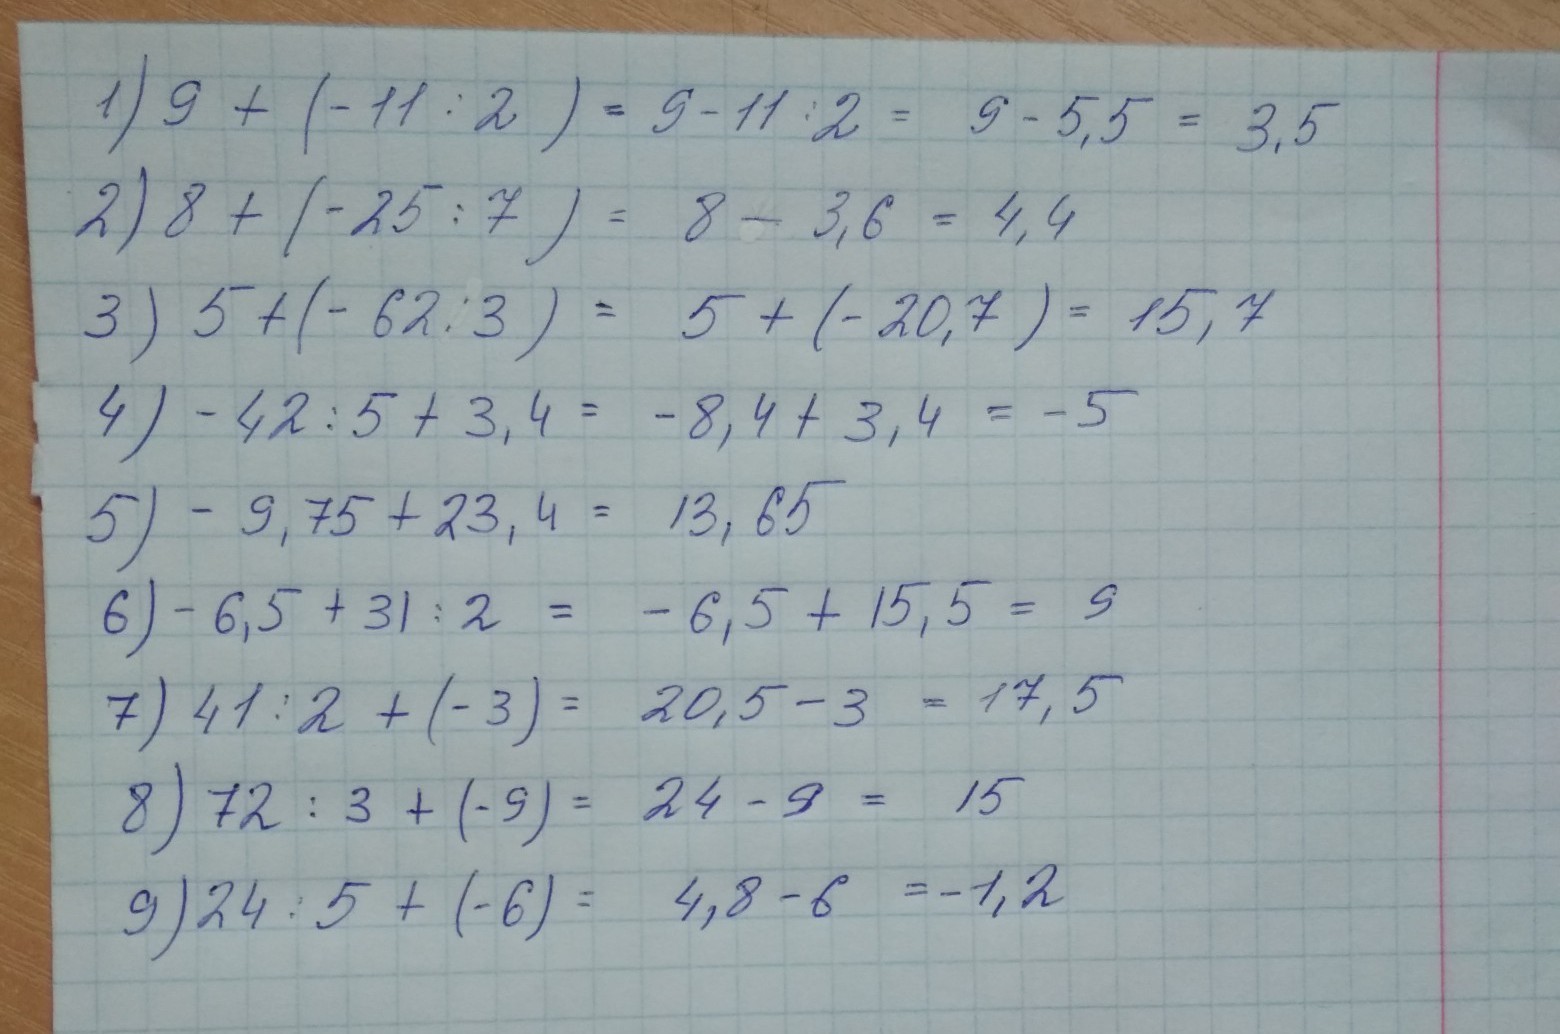 1) 9 + (-11 : 2) = 9 - 11 : 2 = 9 - 5,5 = 3,5
2) 8 + (-25 : 7) = 8 - 3,6 = 4,4
3) 5 + (-62 : 3) = 5 + (-20,7) = 15,7
4) -42 : 5 + 3,4 = -8,4 + 3,4 = -5
5) -9,75 + 23,4 = 13,65
6) -6,5 + 31 : 2 = -6,5 + 15,5 = 9
7) 41 : 2 + (-3) = 20,5 - 3 = 17,5
8) 72 : 3 + (-9) = 24 - 9 = 15
9) 24 : 5 + (-6) = 4,8 - 6 = -1,2